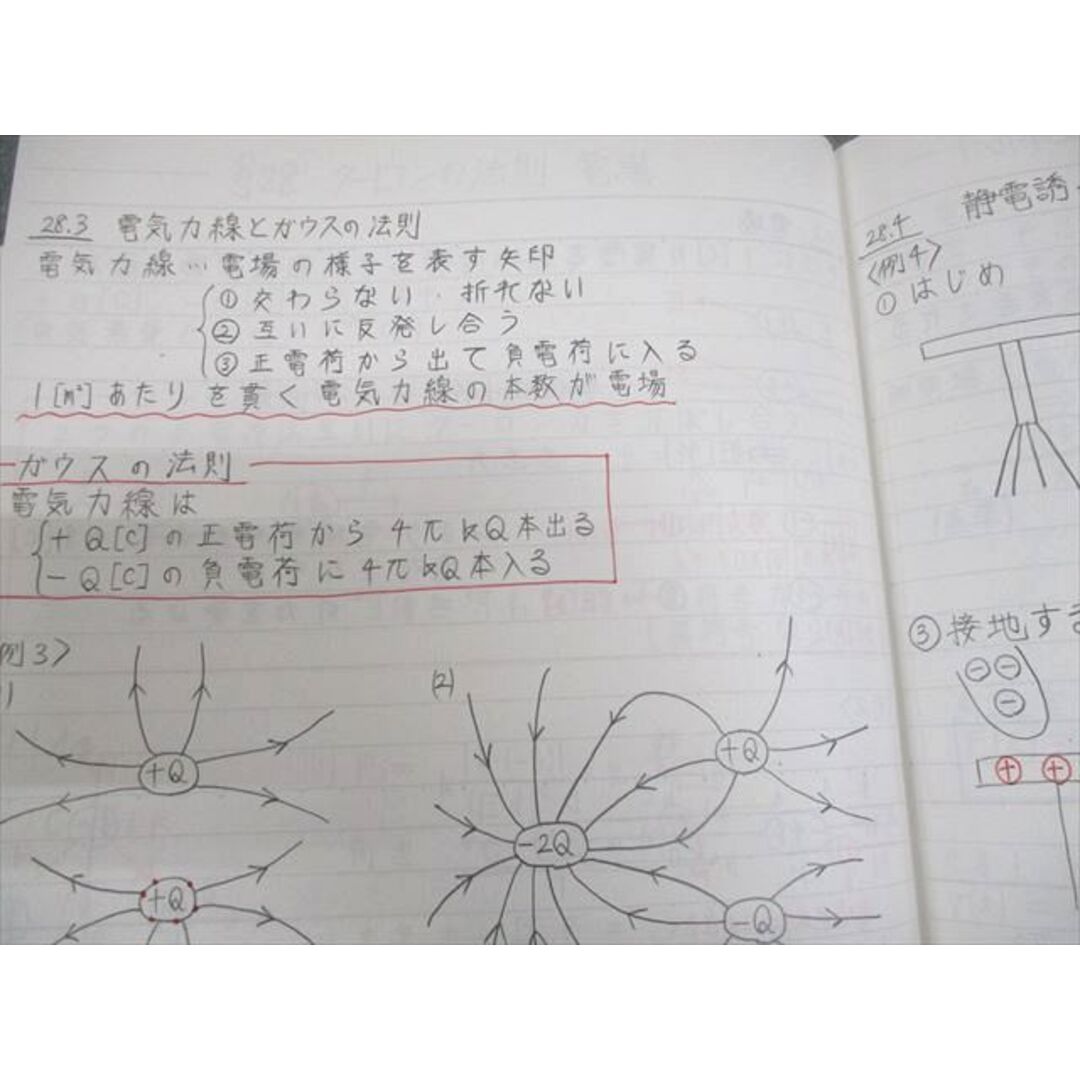 28.3 電気力線とガウスの法則
電気力線… 電場の様子を表す矢印
① 交わらない・折れない
② 互いに反発し合う
③ 正電荷から出て負電荷に入る
1[m²]あたりを貫く電気力線の本数が電場
ガウスの法則
電気力線は
+Q[C]の正電荷から4πkQ本出る
-Q[C]の負電荷に4πkQ本入る
例3>
+Q
+Q
(2)
+Q
-2Q
-Q
28.4 静電誘
<例4>
① はじめ
③ 接地す
⊖ ⊖
⊖
⊕ ⊕